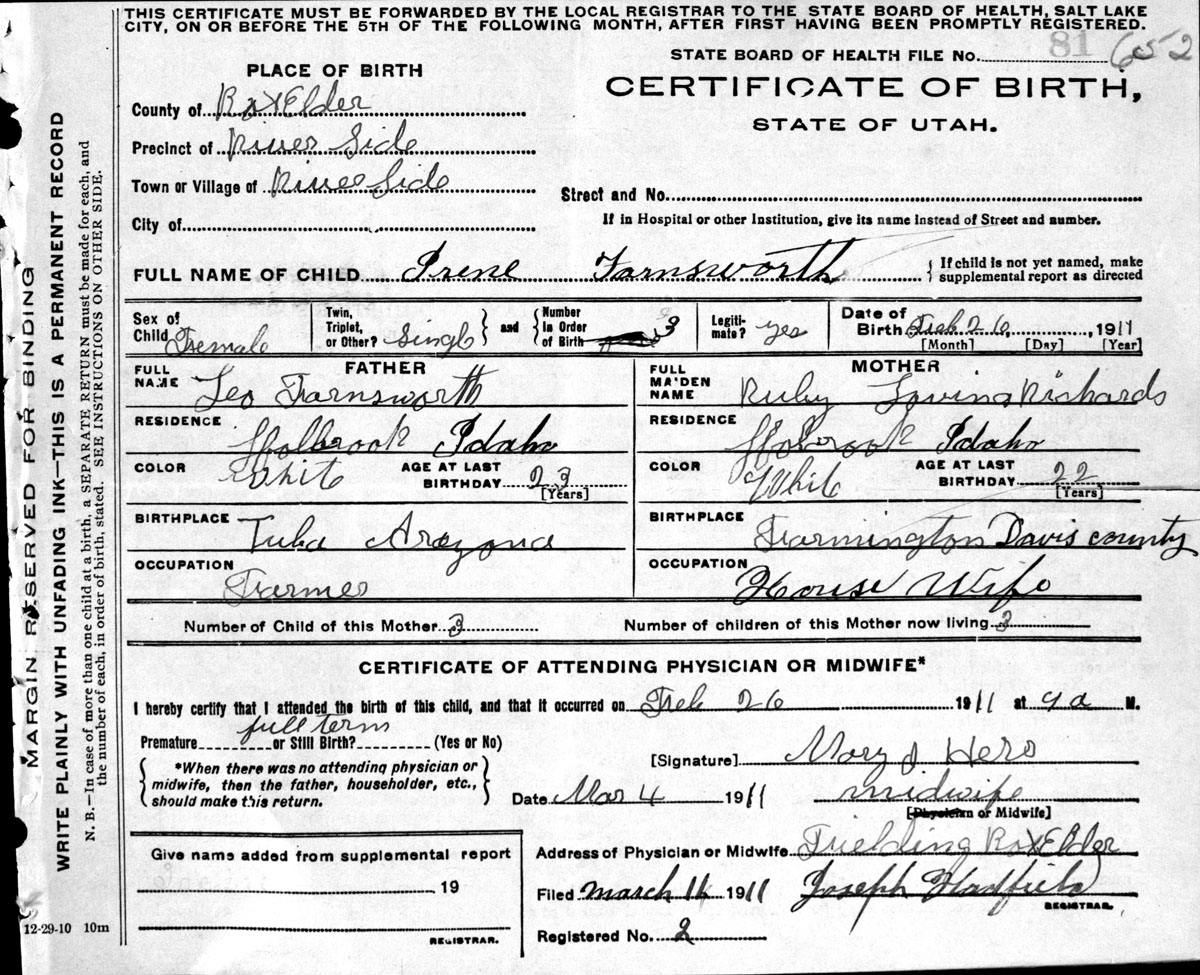 THIS CERTIFICATE MUST BE FORWARDED BY THE LOCAL REGISTRAR TO THE STATE BOARD OF HEALTH, SALT LAKE
CITY, ON OR BEFORE THE 5TH OF THE FOLLOWING MONTH, AFTER FIRST HAVING BEEN PROMPTLY REGISTERED.
STATE BOARD OF HEALTH FILE No. 81 652
PLACE OF BIRTH
CERTIFICATE OF BIRTH,
STATE OF UTAH.
County of Box Elder
Precinct of River Side
Town or Village of River Side
Street and No.
City of
If in Hospital or other Institution, give its name instead of Street and number.
FULL NAME OF CHILD Irene Farnsworth { If child is not yet named, make
supplemental report as directed
Sex of Child Female
Twin, Triplet, or Other? Singl } and { Number in Order of Birth 3
Legitimate? yes
Date of Birth Feb 26, 1911
[Month] [Day] [Year]
FATHER
FULL NAME Leo Farnsworth
RESIDENCE Holbrook Idaho
COLOR White
AGE AT LAST BIRTHDAY 23
[Years]
BIRTHPLACE Tuba Arozona
OCCUPATION Farmer
MOTHER
FULL MAIDEN NAME Ruby Lovina Richards
RESIDENCE Holbrook Idaho
COLOR White
AGE AT LAST BIRTHDAY 22
[Years]
BIRTHPLACE Farmington Davis county
OCCUPATION House Wife
Number of Child of this Mother 3
Number of children of this Mother now living 3
CERTIFICATE OF ATTENDING PHYSICIAN OR MIDWIFE*
I hereby certify that I attended the birth of this child, and that it occurred on Feb 26 1911 at 9 a M.
full term
Premature or Still Birth? (Yes or No)
{ *When there was no attending physician or
midwife, then the father, householder, etc.,
should make this return. }
[Signature] Mary J. Hero
Date Mar 4 1911 midwife
[Physician or Midwife]
Give name added from supplemental report
19
REGISTRAR.
Address of Physician or Midwife Fielding Box Elder
Filed march 14 1911 Joseph Hadfield
REGISTRAR.
Registered No. 2
12-29-10 10m
MARGIN RESERVED FOR BINDING
WRITE PLAINLY WITH UNFADING INK—THIS IS A PERMANENT RECORD
N. B.—In case of more than one child at a birth, a SEPARATE RETURN must be made for each, and
the number of each, in order of birth, stated. SEE INSTRUCTIONS ON OTHER SIDE.